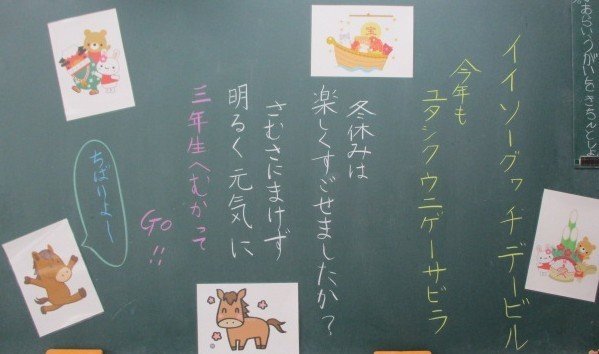 イイソーグヮチデービル
今年も
ユタシクウニゲーサビラ
冬休みは
楽しくすごせましたか?
さむさにまけず
明るく元気に
三年生へむかって
Go!!
ちばりよー